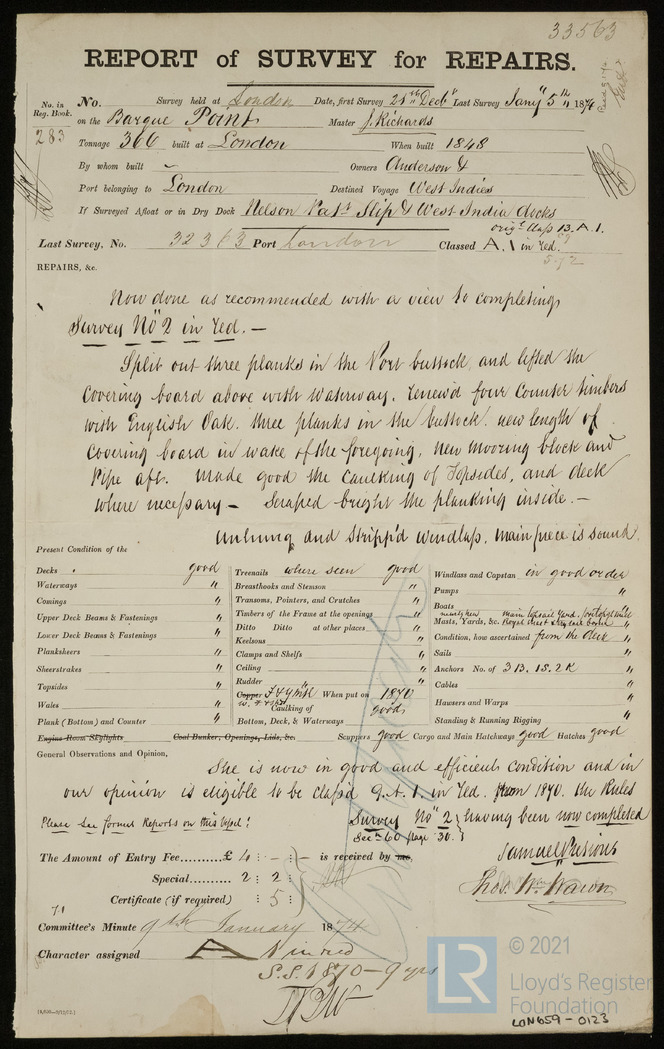 33563
REPORT of SURVEY for REPAIRS.
No. in Reg. Book. 283
No. Survey held at London Date, first Survey 21st Decr Last Survey Jany 5th 1874
on the Barque Master J. Richards
Tonnage 366 built at London When built 1848
By whom built Owners Anderson &
Port belonging to London Destined Voyage West Indies
If Surveyed Afloat or in Dry Dock Nelson Patt Slip & West India docks
origl Class 13. A. 1.
Last Survey, No. 32363 Port London Classed A. 1 in red.
5-72
REPAIRS, &c.
Now done as recommended with a view to completing
Survey No 2 in red. —
Split out three planks in the Port buttock, and lifted the
covering board above with waterway. renew'd four counter timbers
with English Oak. three planks in the buttock. new length of
covering board in wake of the foregoing, new mooring block and
Pipe aft. Made good the caulking of Topsides, and deck
where necessary — Scraped bright the planking inside. —
Unhung and stripp'd windlass, main piece is sound.
Present Condition of the
Decks good
Waterways "
Comings "
Upper Deck Beams & Fastenings "
Lower Deck Beams & Fastenings "
Planksheers "
Sheerstrakes "
Topsides "
Wales "
Plank (Bottom) and Counter "
Treenails where seen good
Breasthooks and Stemson "
Transoms, Pointers, and Crutches "
Timbers of the Frame at the openings "
Ditto Ditto at other places "
Keelsons "
Clamps and Shelfs "
Ceiling "
Rudder "
Copper When put on 1870
Caulking of good
Bottom, Deck, & Waterways
Windlass and Capstan in good order
Pumps "
Boats "
Masts, Yards, &c.
Condition, how ascertained from the deck "
Sails "
Anchors No. of 3 B. 1 S. 2 K "
Cables "
Hawsers and Warps "
Standing & Running Rigging "
Engine Room Skylights Coal Bunker, Openings, Lids, &c. Scuppers good Cargo and Main Hatchways good Hatches good
General Observations and Opinion,
She is now in good and efficient condition and in
our opinion is eligible to be class'd 9. A. 1. in red. from 1870. the Rules
Please see former Reports on this Vessel! Survey No 2 having been now completed
Sec 60 page 30.
The Amount of Entry Fee..........£ 4 : - : - is received by me,
Special.......... 2 : 2 :
Certificate (if required) : 5 :
Samuel
Thos. Wm Wawn
Committee's Minute 9th January 1874
Character assigned A 1 in red
S.S. 1870 - 9 yrs
LR
© 2021
Lloyd's Register
Foundation
LON659-0123